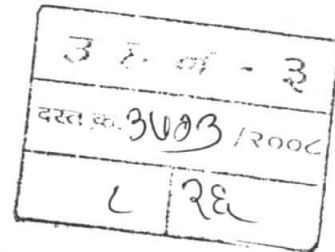 उ ह न - ३
दस्त क्र. ३७७३ /२००८
८ २६